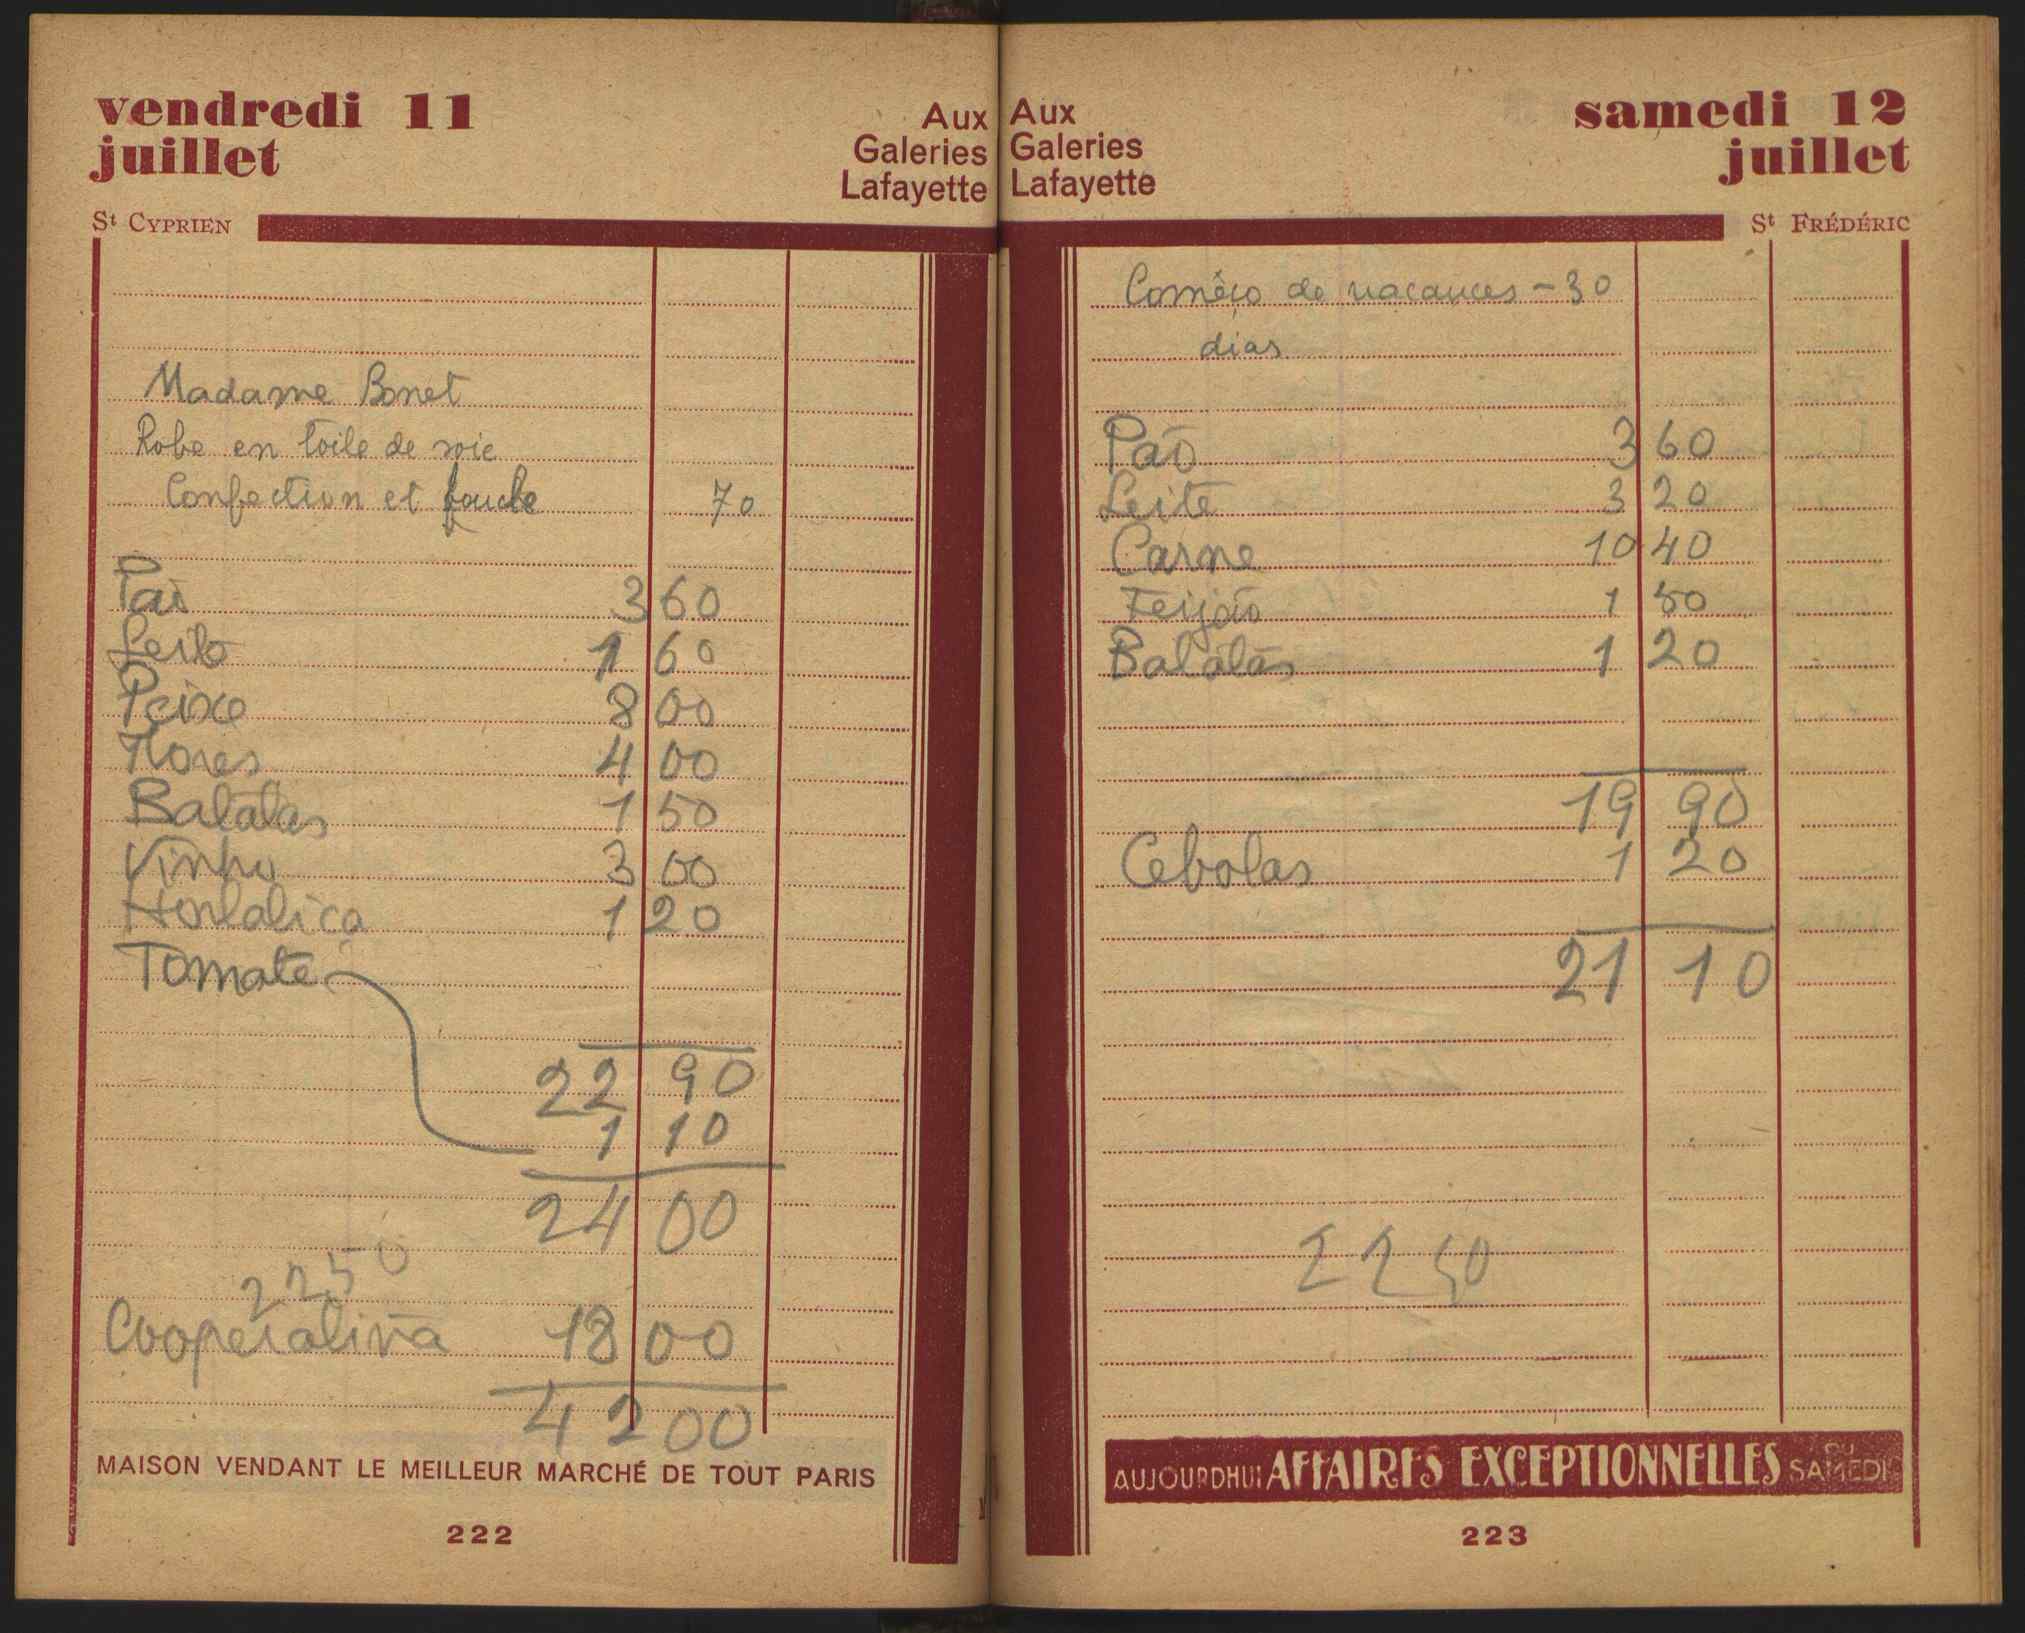 vendredi 11
juillet
Aux
Galeries
Lafayette
St CYPRIEN
Madame Bonet
Robe en toile de soie
Confection et 70
Pão 3 60
Leite 1 60
Peixe 8 00
Flores 4 00
Batatas 1 50
Vinho 3 00
Hortaliça 1 20
Tomate
22 90
1 10
24 00
22 50
Cooperativa 18 00
42 00
MAISON VENDANT LE MEILLEUR MARCHÉ DE TOUT PARIS
222
Aux
Galeries
Lafayette
samedi 12
juillet
St FRÉDÉRIC
Começo de vacances - 30
dias
Pão 3 60
Leite 3 20
Carne 10 40
Feijão 1 50
Batatas 1 20
19 90
Cebolas 1 20
21 10
22 50
AUJOURDHUI AFFAIRES EXCEPTIONNELLES DU SAMEDI
223